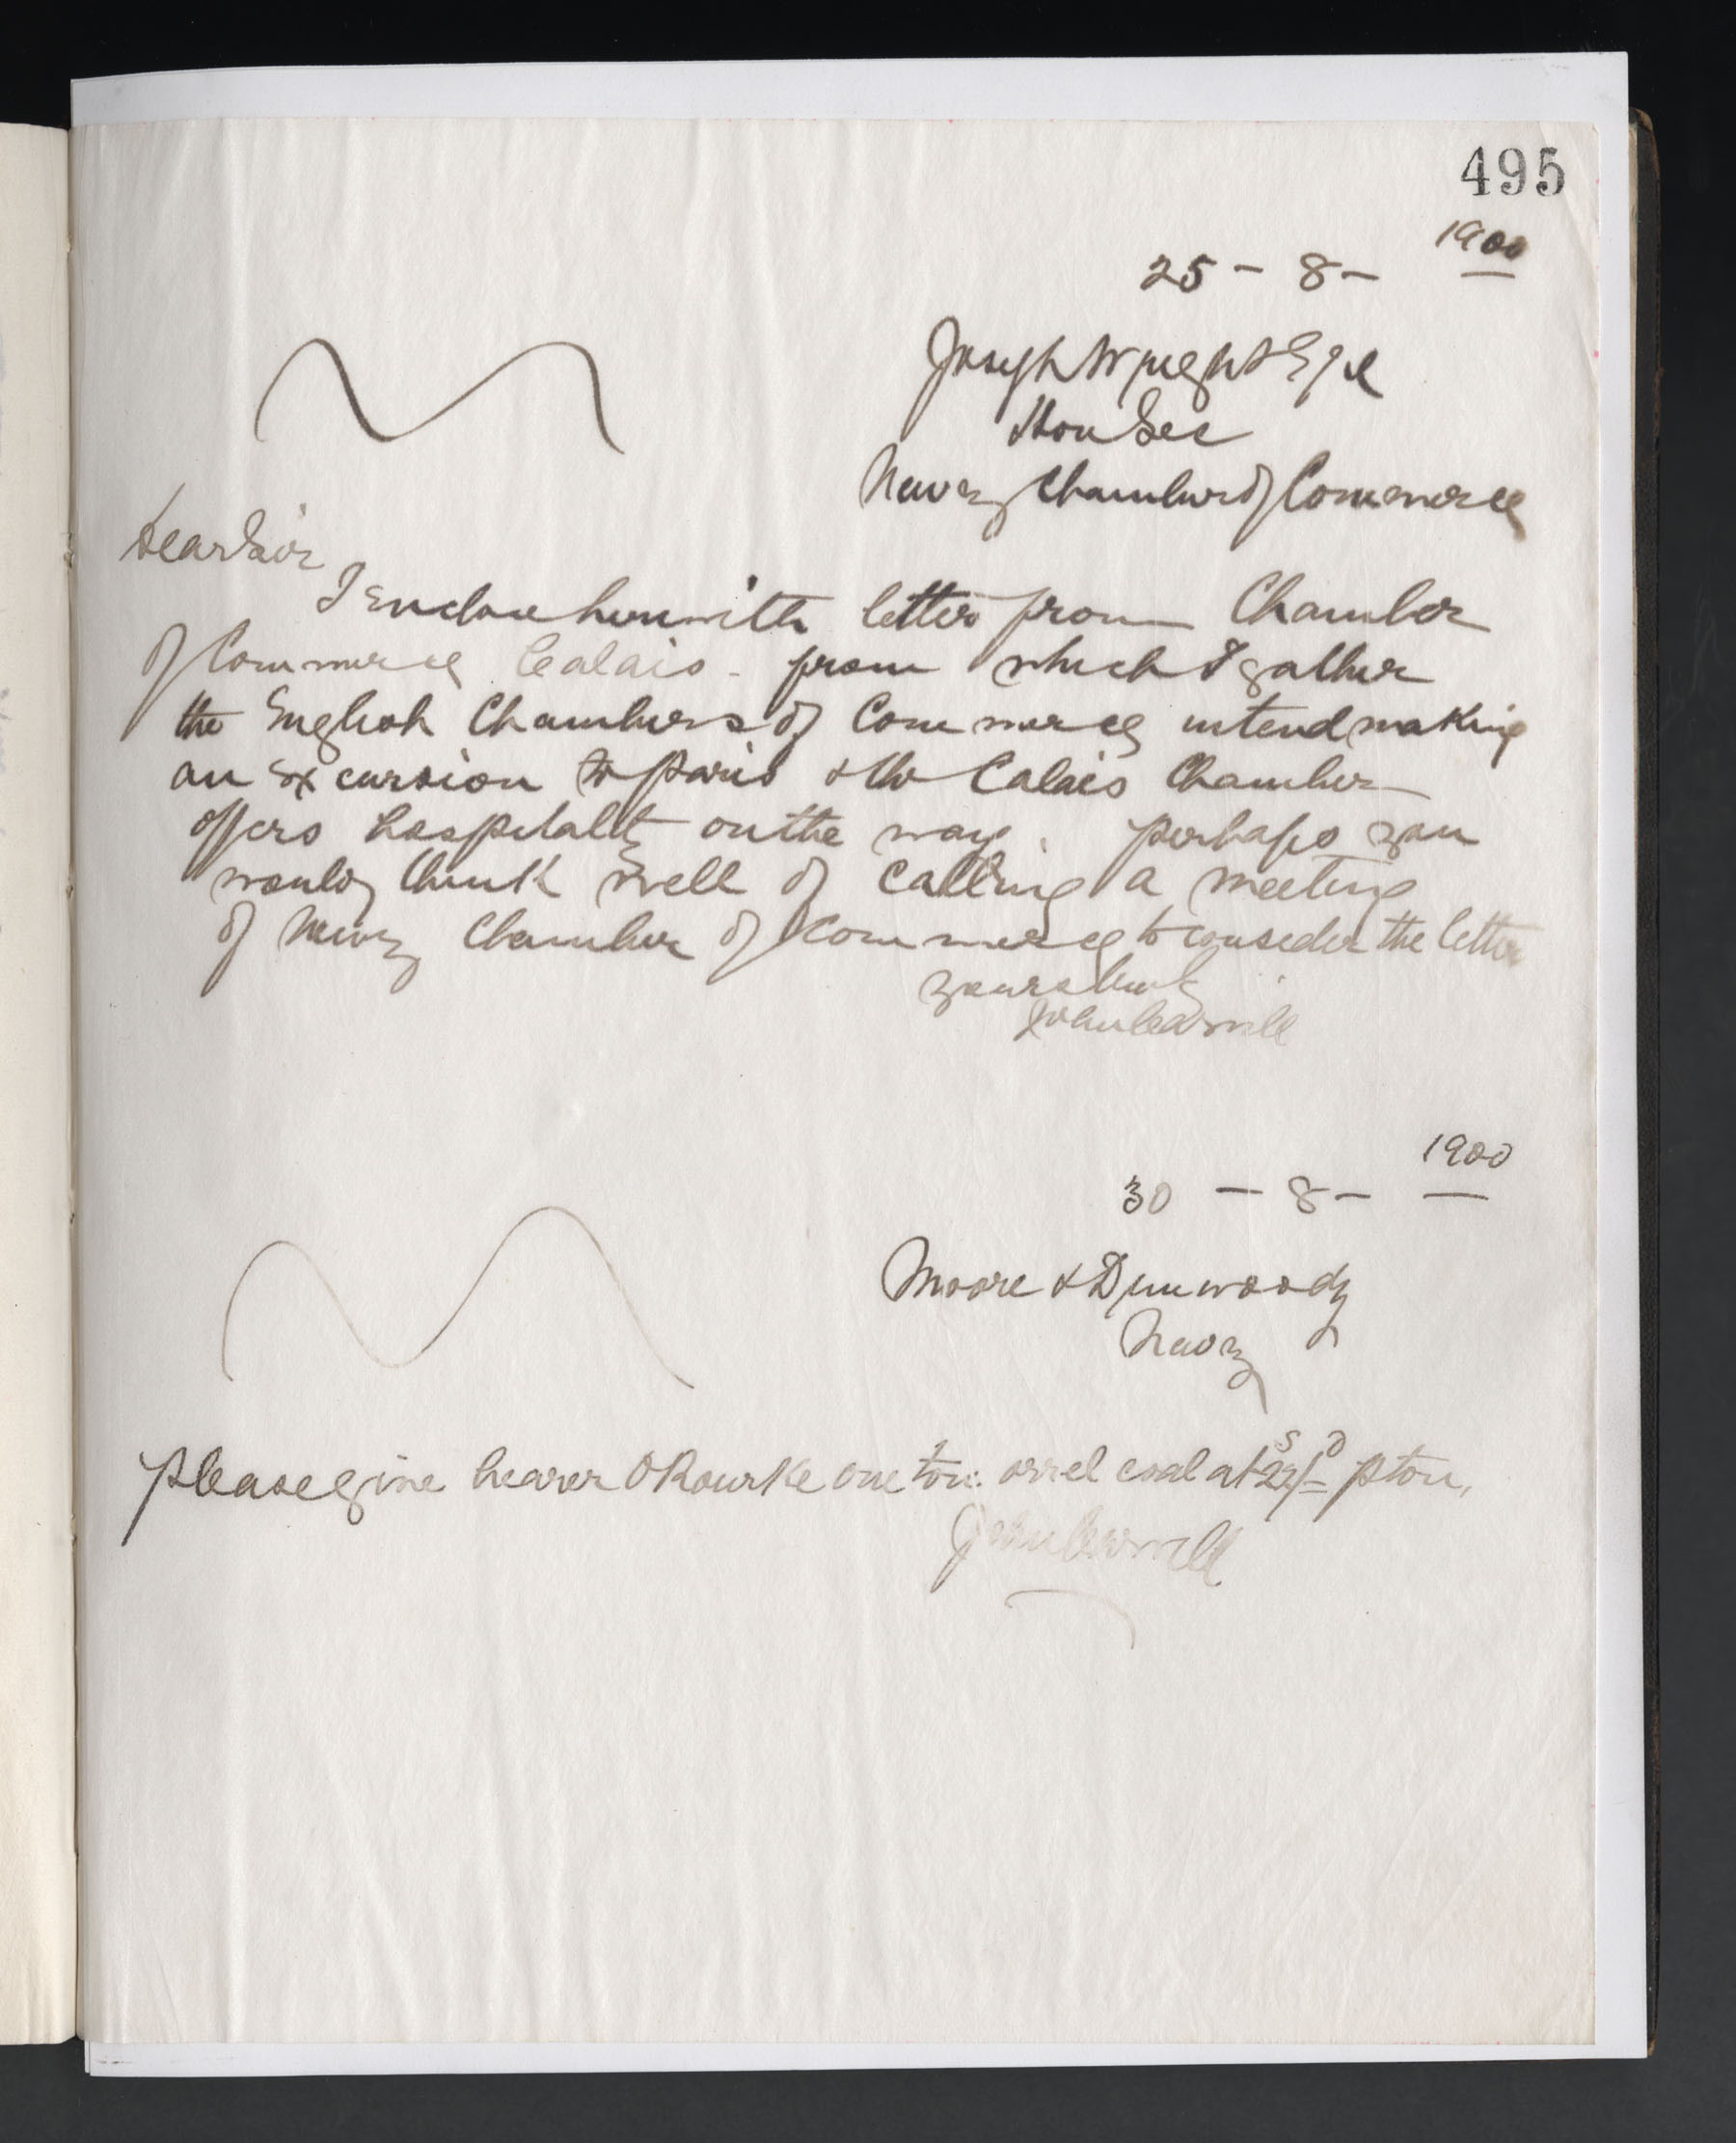 495
25 - 8 - 1900
Joseph Wright Esqe
Hon Sec
Newry Chamber of Commerce
Dear Sir
I enclose herewith letter from Chamber
of Commerce Calais - from which I gather
the English Chambers of Commerce intend making
an excursion to Paris & the Calais Chamber
offers hospitality on the way. perhaps you
would think well of calling a meeting
of Newry Chamber of Commerce to consider the letter
yours truly
30 - 8 - 1900
Moore & Dunwoody
Newry
Please give bearer O Rourke one ton orrel coal at p ton,